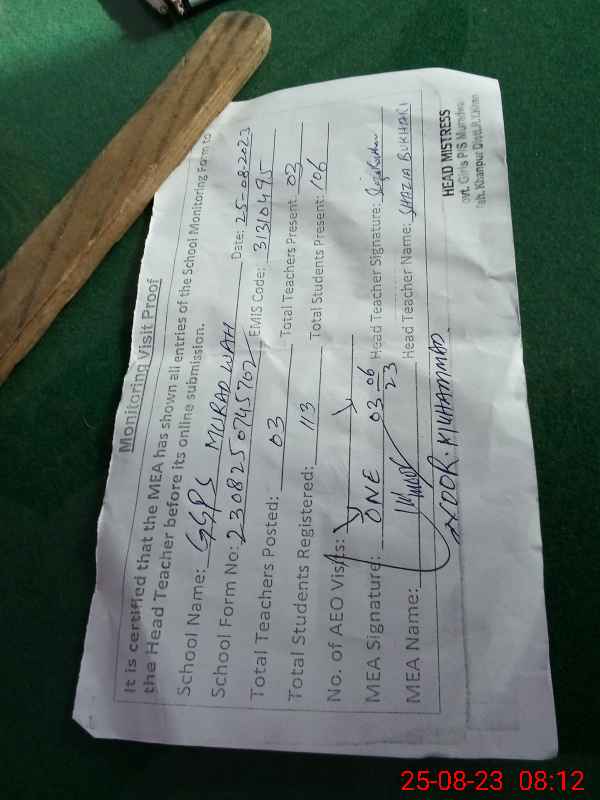 Monitoring Visit Proof
It is certified that the MEA has shown all entries of the School Monitoring Form to
the Head Teacher before its online submission.
School Name: GGPS MURAD WAH Date: 25-08-2023
School Form No: 2308250745702 EMIS Code: 31310495
Total Teachers Posted: 03 Total Teachers Present: 03
Total Students Registered: 113 Total Students Present: 106
No. of AEO Visits:
ONE 03-06
23
MEA Signature: Head Teacher Signature:
MEA Name: NOOR. MUHAMMAD Head Teacher Name: SHAZIA BUKHARI
HEAD MISTRESS
Govt. Girls P/S Murad
Teh. Khanpur Distt.R.Y.Khan
25-08-23 08:12